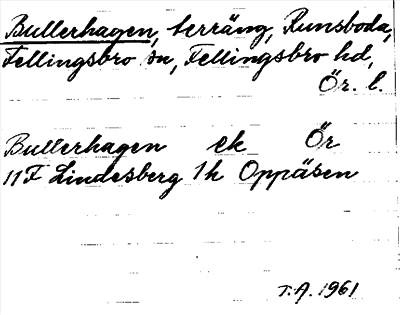 Bullerhagen, terräng, Runsboda,
Fellingsbro sn, Fellingsbro hd,
Ör. l.
Bullerhagen ek Ör
11F Lindesberg 1h Oppåsen
T.A. 1961